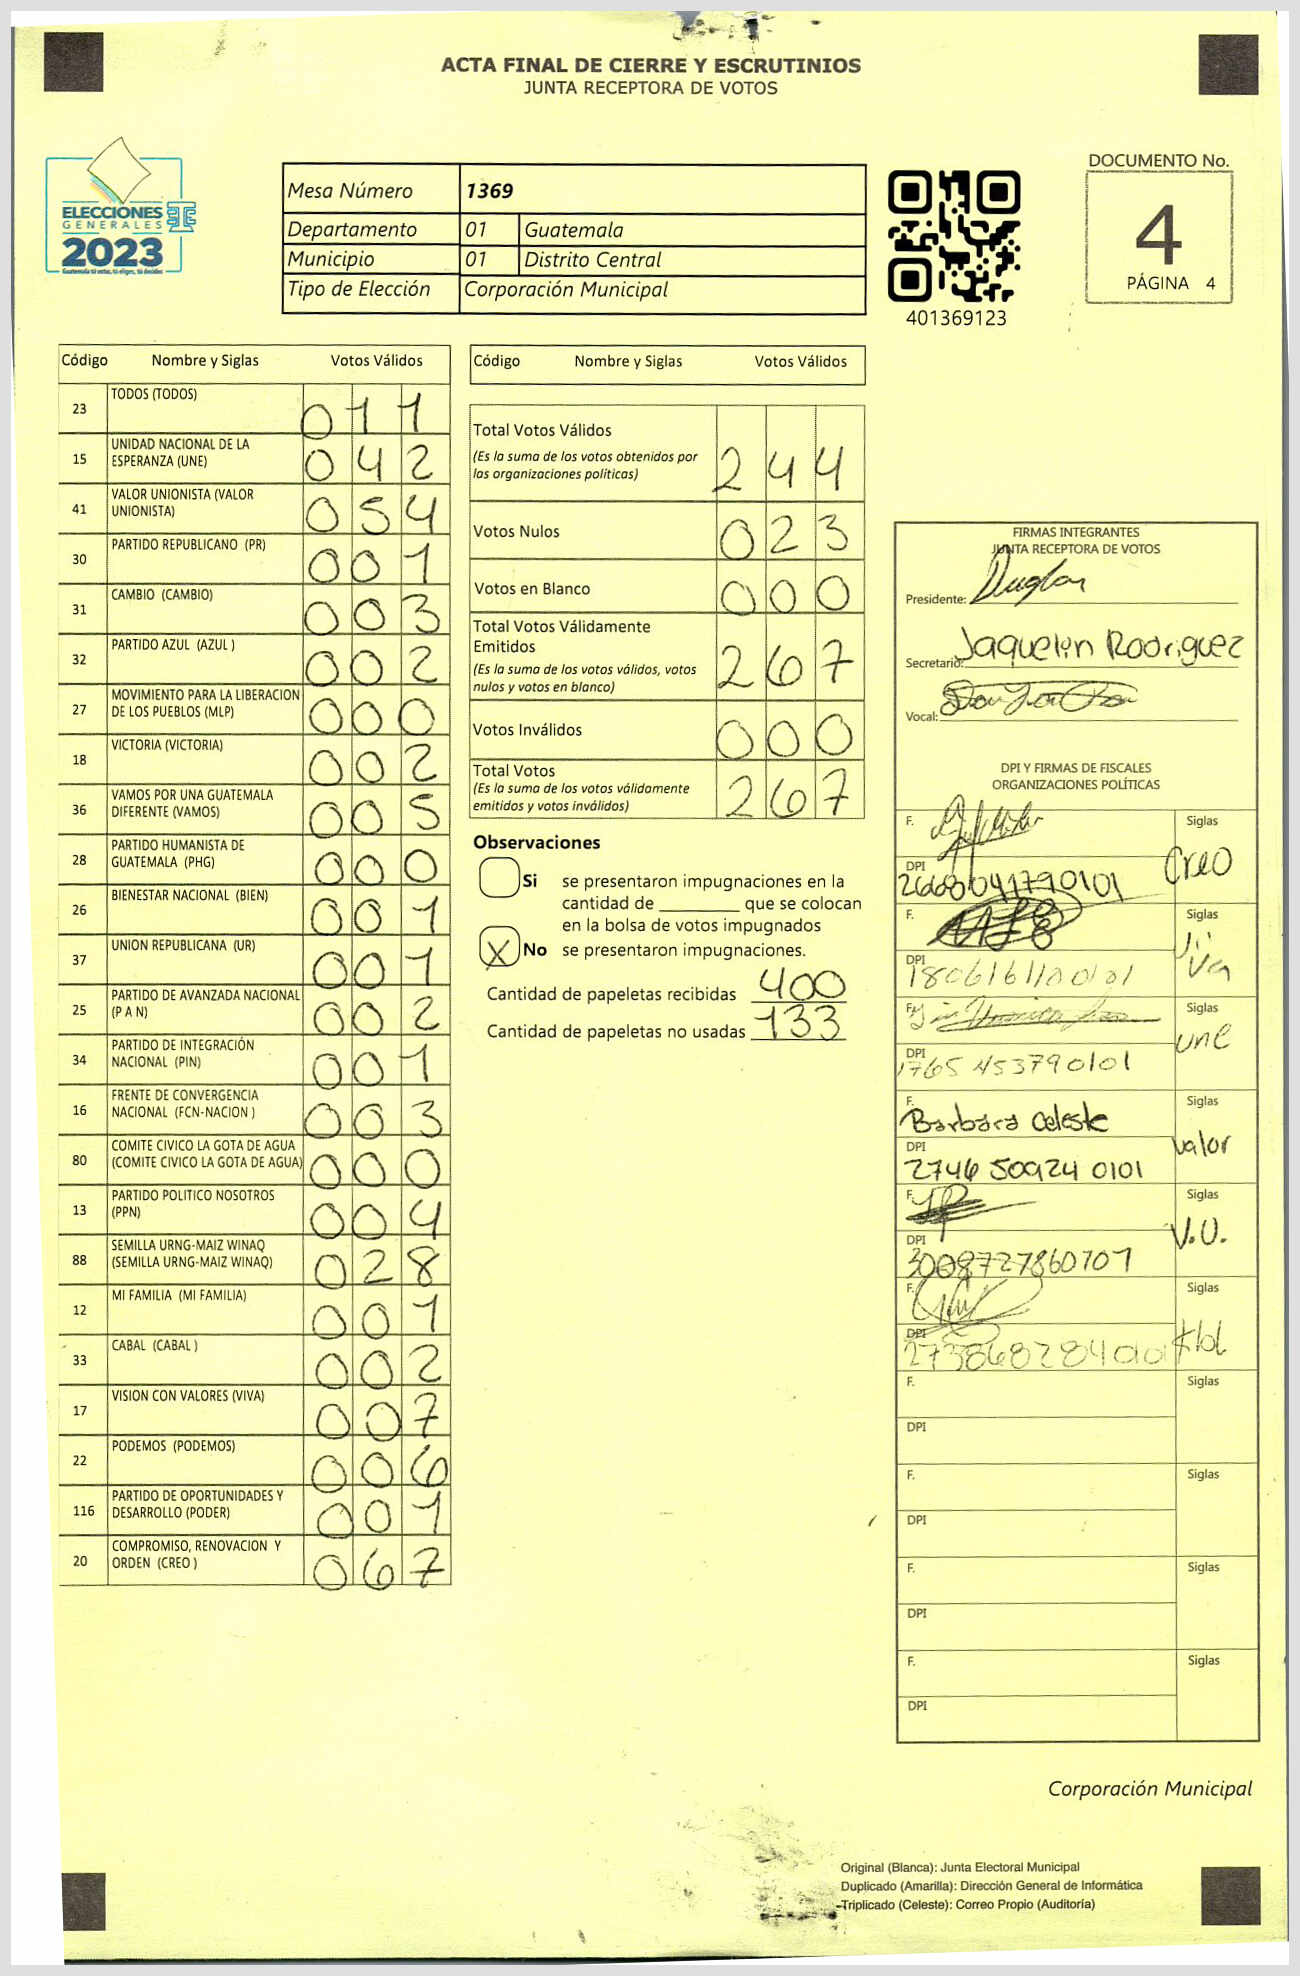 ACTA FINAL DE CIERRE Y ESCRUTINIOS
JUNTA RECEPTORA DE VOTOS
ELECCIONES
GENERALES
2023
Guatemala tú votas, tú eliges, tú decides
Mesa Número 1369
Departamento 01 Guatemala
Municipio 01 Distrito Central
Tipo de Elección Corporación Municipal
401369123
DOCUMENTO No.
4
PÁGINA 4
Código Nombre y Siglas Votos Válidos
23 TODOS (TODOS) 011
15 UNIDAD NACIONAL DE LA
ESPERANZA (UNE) 042
41 VALOR UNIONISTA (VALOR
UNIONISTA) 054
30 PARTIDO REPUBLICANO (PR) 001
31 CAMBIO (CAMBIO) 003
32 PARTIDO AZUL (AZUL ) 002
27 MOVIMIENTO PARA LA LIBERACION
DE LOS PUEBLOS (MLP) 000
18 VICTORIA (VICTORIA) 002
36 VAMOS POR UNA GUATEMALA
DIFERENTE (VAMOS) 005
28 PARTIDO HUMANISTA DE
GUATEMALA (PHG) 000
26 BIENESTAR NACIONAL (BIEN) 001
37 UNION REPUBLICANA (UR) 001
25 PARTIDO DE AVANZADA NACIONAL
(P A N) 002
34 PARTIDO DE INTEGRACIÓN
NACIONAL (PIN) 001
16 FRENTE DE CONVERGENCIA
NACIONAL (FCN-NACION ) 003
80 COMITE CIVICO LA GOTA DE AGUA
(COMITE CIVICO LA GOTA DE AGUA) 000
13 PARTIDO POLITICO NOSOTROS
(PPN) 004
88 SEMILLA URNG-MAIZ WINAQ
(SEMILLA URNG-MAIZ WINAQ) 028
12 MI FAMILIA (MI FAMILIA) 001
33 CABAL (CABAL ) 002
17 VISION CON VALORES (VIVA) 007
22 PODEMOS (PODEMOS) 006
116 PARTIDO DE OPORTUNIDADES Y
DESARROLLO (PODER) 001
20 COMPROMISO, RENOVACION Y
ORDEN (CREO ) 067
Código Nombre y Siglas Votos Válidos
Total Votos Válidos
(Es la suma de los votos obtenidos por
las organizaciones políticas) 244
Votos Nulos 023
Votos en Blanco 000
Total Votos Válidamente
Emitidos
(Es la suma de los votos válidos, votos
nulos y votos en blanco) 267
Votos Inválidos 000
Total Votos
(Es la suma de los votos válidamente
emitidos y votos inválidos) 267
Observaciones
Si se presentaron impugnaciones en la
cantidad de ________ que se colocan
en la bolsa de votos impugnados
X No se presentaron impugnaciones.
Cantidad de papeletas recibidas 400
Cantidad de papeletas no usadas 133
FIRMAS INTEGRANTES
JUNTA RECEPTORA DE VOTOS
Presidente:
Secretario: Jaquelin Rodriguez
Vocal:
DPI Y FIRMAS DE FISCALES
ORGANIZACIONES POLÍTICAS
F. Siglas
DPI Creo
2668041790101
F. Siglas
DPI Viva
F. Siglas
DPI une
1765 453790101
F. Barbara Celeste Siglas
DPI valor
2746 50924 0101
F. Siglas
DPI V.U.
3008727860101
F. Siglas
DPI
F. Siglas
DPI
F. Siglas
DPI
F. Siglas
DPI
F. Siglas
DPI
Corporación Municipal
Original (Blanca): Junta Electoral Municipal
Duplicado (Amarilla): Dirección General de Informática
Triplicado (Celeste): Correo Propio (Auditoría)